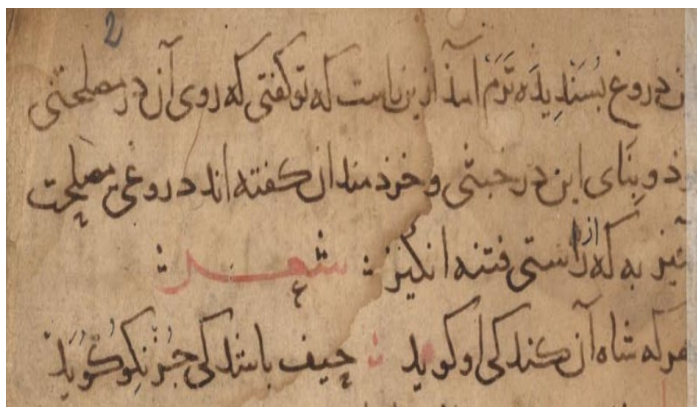 2
ن دروغ بسندیذه ترم آمذ ازین راست که تو گفتی که روی آن در مصلحتی
ذ و بنای این در خبثی و خردمندان گفته اند دروغی مصلحت
آمیز به که از راستی فتنه انگیز : شعر :
هرکه شاه آن کند کی او گوید : حیف باشد کی جز نکو گویذ